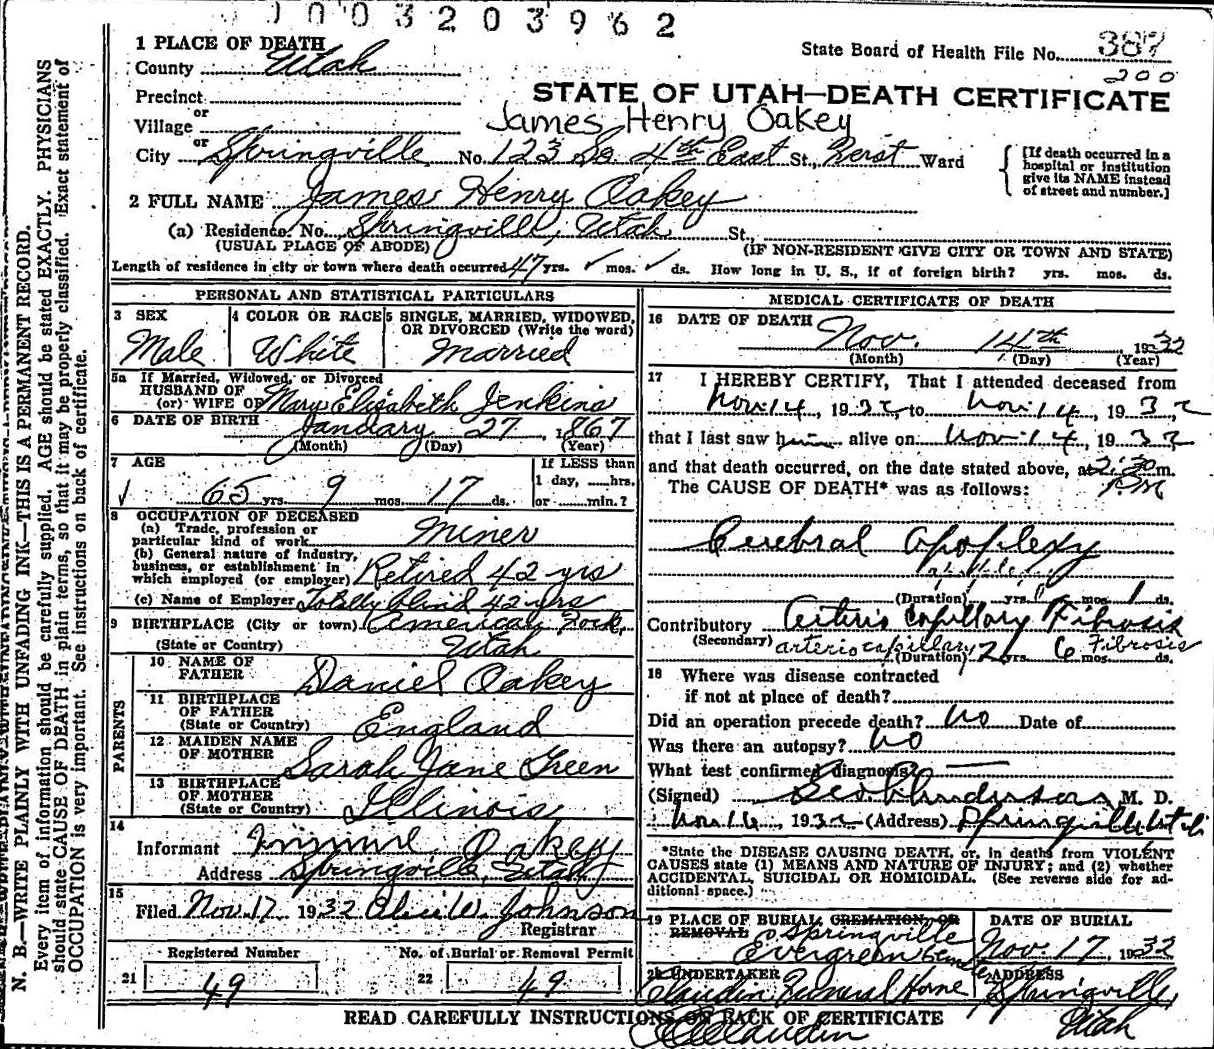 0003203962
State Board of Health File No. 387
200
1 PLACE OF DEATH
County Utah
Precinct
or
Village
or
STATE OF UTAH—DEATH CERTIFICATE
James Henry Oakey
City Springville No. 123 So 4th East St., First Ward
[If death occurred in a
hospital or institution
give its NAME instead
of street and number.]
2 FULL NAME James Henry Oakey
(a) Residence. No. Springville, Utah St.,
(USUAL PLACE OF ABODE) (IF NON-RESIDENT GIVE CITY OR TOWN AND STATE)
Length of residence in city or town where death occurred 47 yrs. ✓ mos. ✓ ds. How long in U. S., if of foreign birth? yrs. mos. ds.
PERSONAL AND STATISTICAL PARTICULARS
3 SEX
Male
4 COLOR OR RACE
White
5 SINGLE, MARRIED, WIDOWED,
OR DIVORCED (Write the word)
Married
5a If Married, Widowed, or Divorced
HUSBAND OF
(or) WIFE OF Mary Elisabeth Jenkins
6 DATE OF BIRTH January 27, 1867
(Month) (Day) (Year)
7 AGE
✓ 65 yrs. 9 mos. 17 ds.
If LESS than
1 day, ....hrs.
or ....min.?
8 OCCUPATION OF DECEASED
(a) Trade, profession or
particular kind of work Miner
(b) General nature of industry,
business, or establishment in
which employed (or employer) Retired 42 yrs
(c) Name of Employer Totally blind 42 yrs
9 BIRTHPLACE (City or town) American Fork,
(State or Country) Utah
PARENTS
10 NAME OF
FATHER Daniel Oakey
11 BIRTHPLACE
OF FATHER
(State or Country) England
12 MAIDEN NAME
OF MOTHER Sarah Jane Green
13 BIRTHPLACE
OF MOTHER
(State or Country) Illinois
14
Informant Oakey
Address Springville, Utah
15
Filed Nov. 17 1932 W. Johnson
Registrar
Registered Number
21 49
No. of Burial or Removal Permit
22 49
MEDICAL CERTIFICATE OF DEATH
16 DATE OF DEATH Nov. 14th, 1932
(Month) (Day) (Year)
17 I HEREBY CERTIFY, That I attended deceased from
Nov. 14, 1932 to Nov. 14, 1932
that I last saw him alive on Nov. 14, 1932
and that death occurred, on the date stated above, at 2:30 m.
P.M
The CAUSE OF DEATH* was as follows:
Cerebral apoplexy
(Duration) yrs. mos. 1 ds.
Contributory Arterio Capillary Fibrosis
(Secondary) arterio capillary Fibrosis
(Duration) 2 yrs 6 mos. ds.
18 Where was disease contracted
if not at place of death?
Did an operation precede death? No Date of
Was there an autopsy? No
What test confirmed diagnosis?
(Signed) Geo Anderson, M. D.
Nov. 16, 1932 (Address) Springville Utah
*State the DISEASE CAUSING DEATH, or, in deaths from VIOLENT
CAUSES state (1) MEANS AND NATURE OF INJURY; and (2) whether
ACCIDENTAL, SUICIDAL OR HOMICIDAL. (See reverse side for ad-
ditional space.)
19 PLACE OF BURIAL, CREMATION, OR
REMOVAL Springville
Evergreen Cem
DATE OF BURIAL
Nov. 17, 1932
20 UNDERTAKER
Claudin Funeral Home
ADDRESS
Springville,
Utah
READ CAREFULLY INSTRUCTIONS ON BACK OF CERTIFICATE
Claudin
N. B.—WRITE PLAINLY WITH UNFADING INK—THIS IS A PERMANENT RECORD.
Every item of information should be carefully supplied. AGE should be stated EXACTLY. PHYSICIANS
should state CAUSE OF DEATH in plain terms, so that it may be properly classified. Exact statement of
OCCUPATION is very important. See instructions on back of certificate.